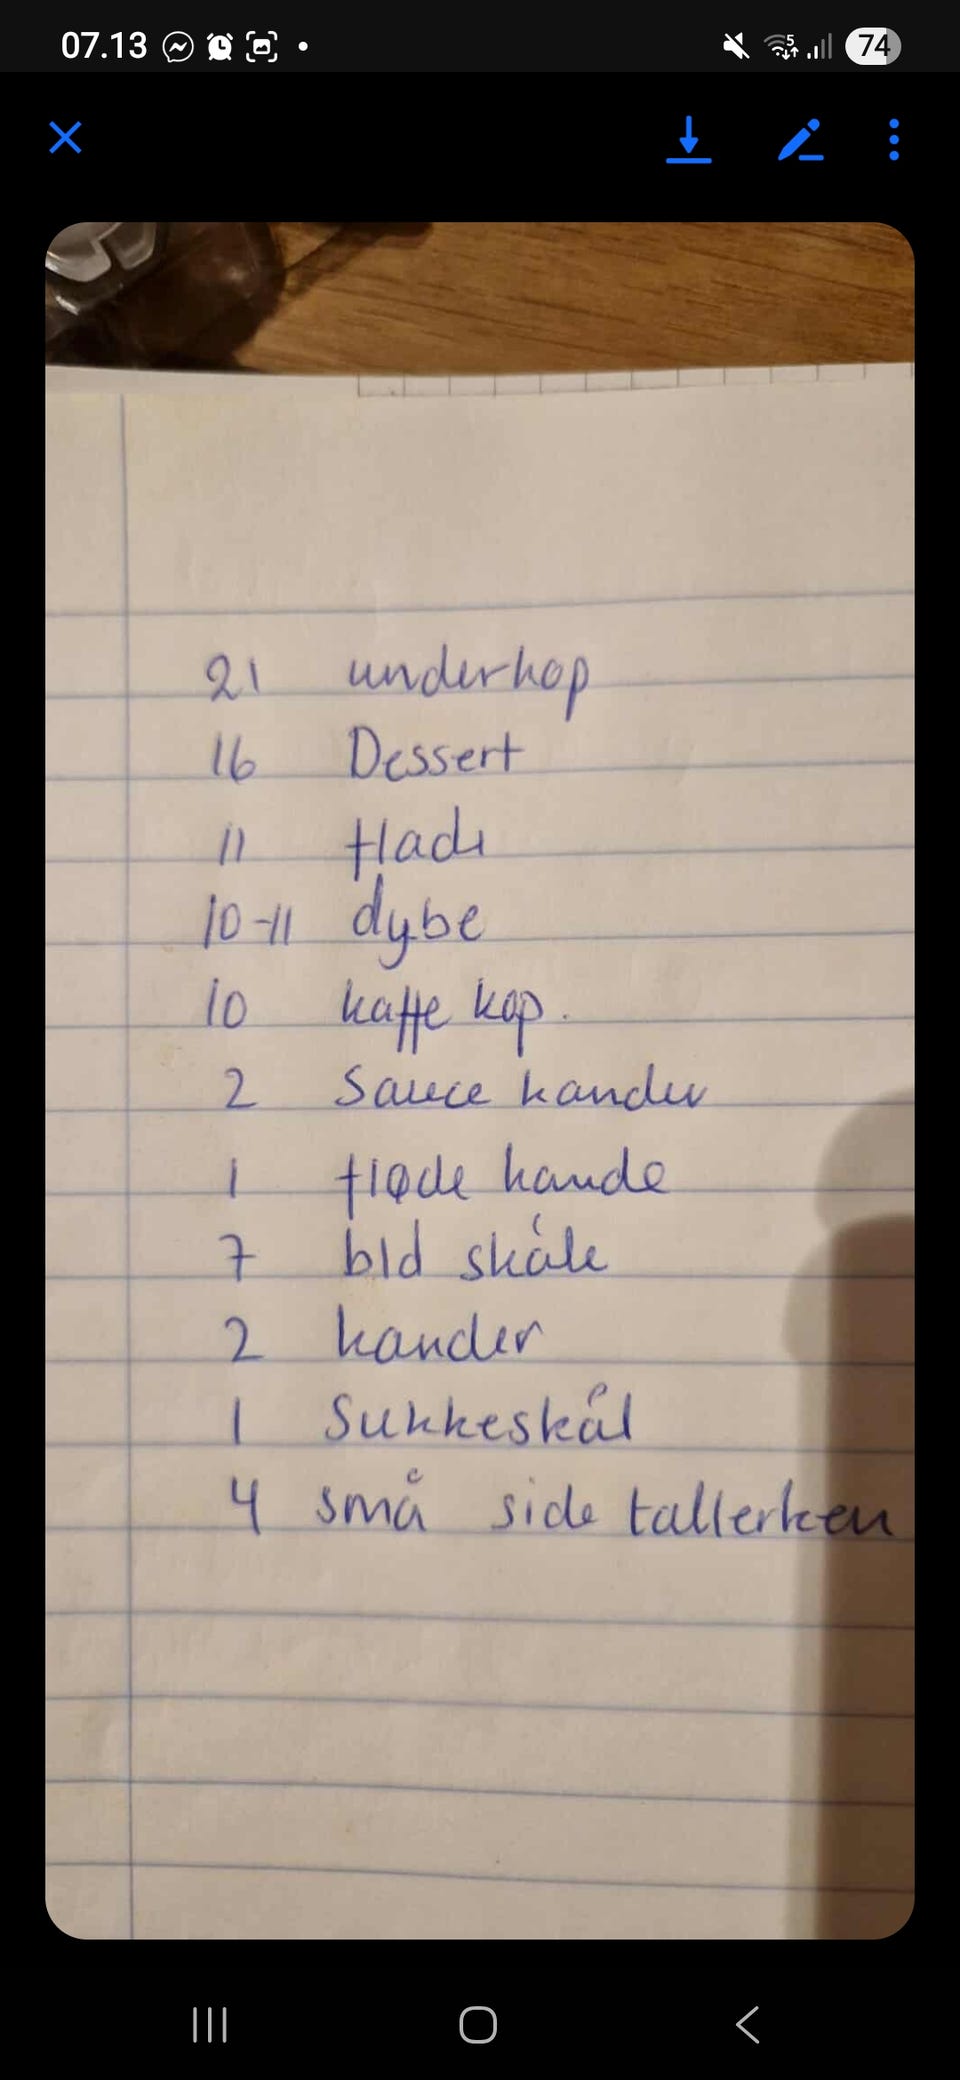 07.13
5
74
21 underkop
16 Dessert
11 flade
10-11 dybe
10 kaffe kop.
2 Sauce kander
1 fløde kande
7 bld skåle
2 kander
1 Sukkeskål
4 små side tallerken